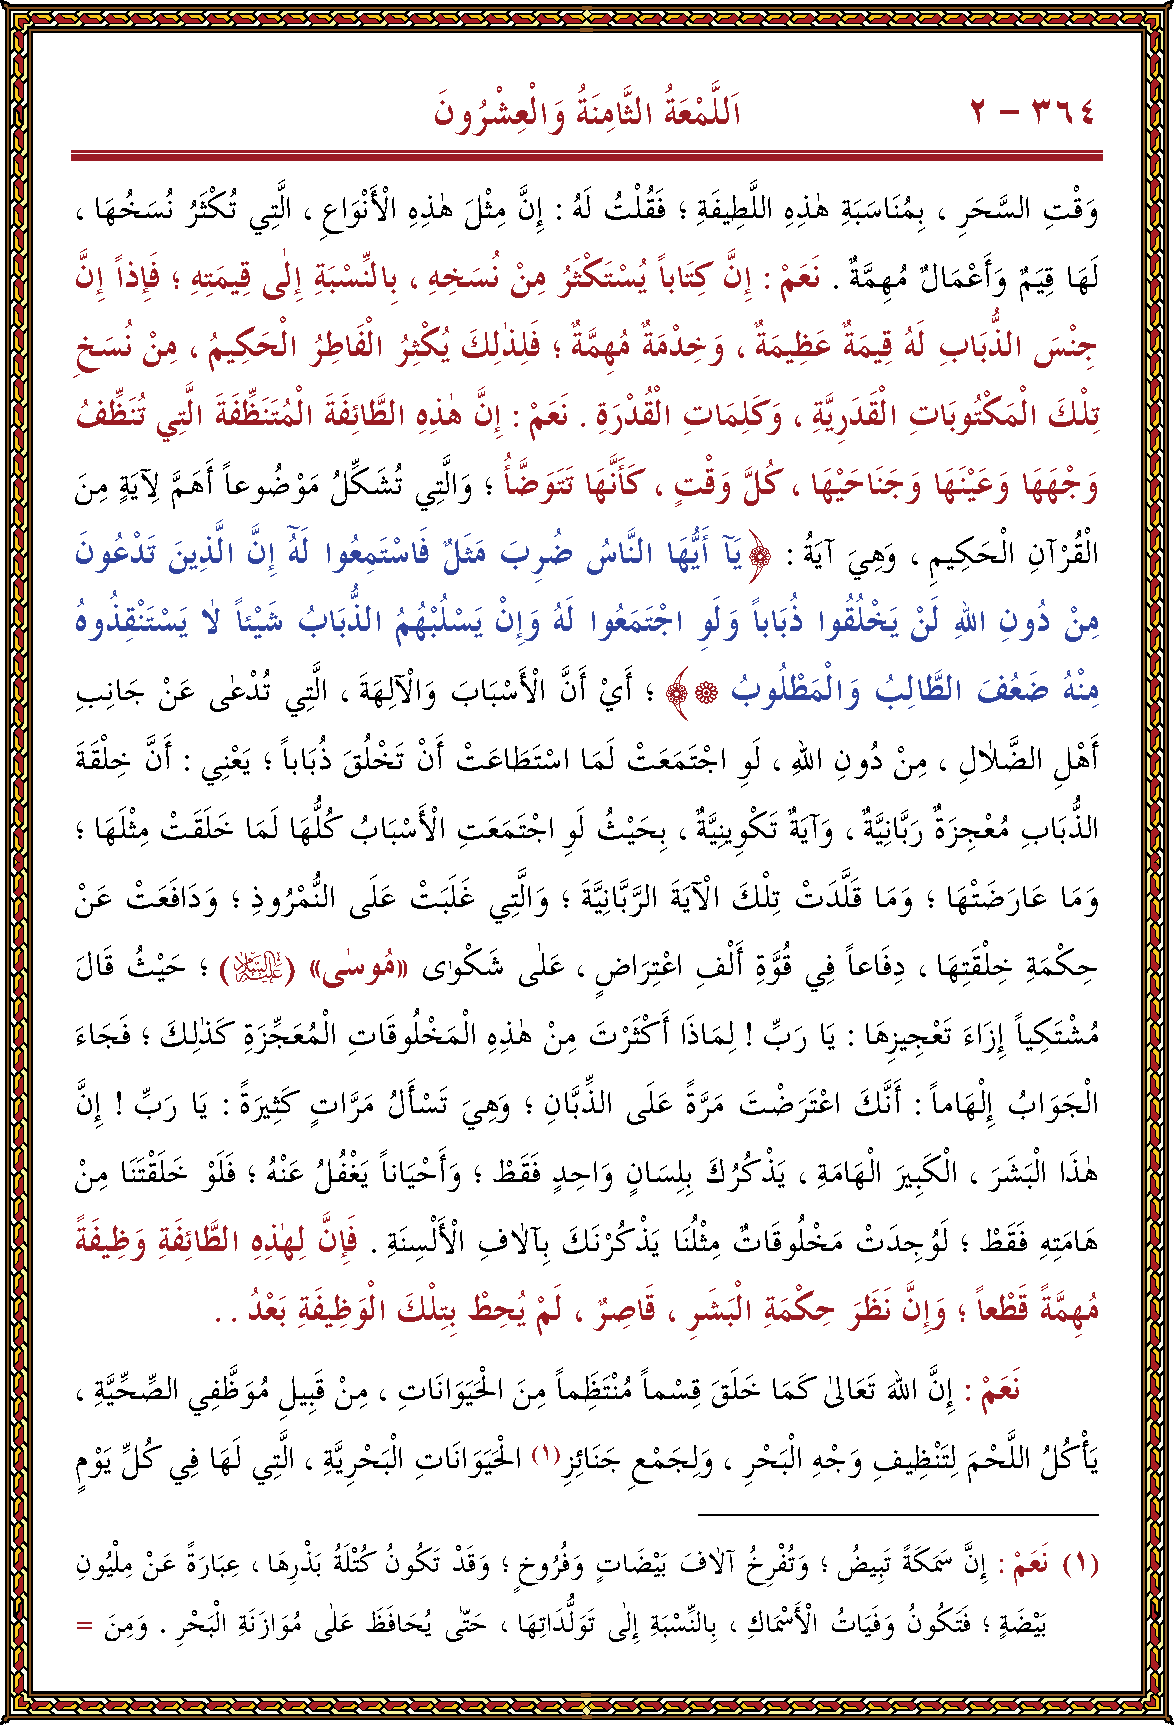 ٣٦٤ – ٢ اَللَّمْعَةُ الثَّامِنَةُ وَالْعِشْرُونَ
وَقْتِ السَّحَرِ ، بِمُنَاسَبَةِ هٰذِهِ اللَّطِيفَةِ ؛ فَقُلْتُ لَهُ : إِنَّ مِثْلَ هٰذِهِ الْأَنْوَاعِ ، الَّتِي تُكْثَرُ نُسَخُهَا ،
لَهَا قِيَمٌ وَأَعْمَالٌ مُهِمَّةٌ . نَعَمْ : إِنَّ كِتَاباً يُسْتَكْثَرُ مِنْ نُسَخِهِ ، بِالنِّسْبَةِ إِلٰى قِيمَتِهِ ؛ فَإِذاً إِنَّ
جِنْسَ الذُّبَابِ لَهُ قِيمَةٌ عَظِيمَةٌ ، وَخِدْمَةٌ مُهِمَّةٌ ؛ فَلِذٰلِكَ يُكْثِرُ الْفَاطِرُ الْحَكِيمُ ، مِنْ نُسَخِ
تِلْكَ الْمَكْتُوبَاتِ الْقَدَرِيَّةِ ، وَكَلِمَاتِ الْقُدْرَةِ . نَعَمْ : إِنَّ هٰذِهِ الطَّائِفَةَ الْمُتَنَظِّفَةَ الَّتِي تُنَظِّفُ
وَجْهَهَا وَعَيْنَهَا وَجَنَاحَيْهَا ، كُلَّ وَقْتٍ ، كَأَنَّهَا تَتَوَضَّأُ ؛ وَالَّتِي تُشَكِّلُ مَوْضُوعاً أَهَمَّ لِآيَةٍ مِنَ
الْقُرْآنِ الْحَكِيمِ ، وَهِيَ آيَةُ : ﴿يَآ أَيُّهَا النَّاسُ ضُرِبَ مَثَلٌ فَاسْتَمِعُوا لَهُٓ إِنَّ الَّذِينَ تَدْعُونَ
مِنْ دُونِ اللهِ لَنْ يَخْلُقُوا ذُبَاباً وَلَوِ اجْتَمَعُوا لَهُ وَإِنْ يَسْلُبْهُمُ الذُّبَابُ شَيْئاً لاٰ يَسْتَنْقِذُوهُ
مِنْهُ ضَعُفَ الطَّالِبُ وَالْمَطْلُوبُ ۞﴾ ؛ أَيْ أَنَّ الْأَسْبَابَ وَالْآلِهَةَ ، الَّتِي تُدْعٰى عَنْ جَانِبِ
أَهْلِ الضَّلاٰلِ ، مِنْ دُونِ اللهِ ، لَوِ اجْتَمَعَتْ لَمَا اسْتَطَاعَتْ أَنْ تَخْلُقَ ذُبَاباً ؛ يَعْنِي : أَنَّ خِلْقَةَ
الذُّبَابِ مُعْجِزَةٌ رَبَّانِيَّةٌ ، وَآيَةٌ تَكْوِينِيَّةٌ ، بِحَيْثُ لَوِ اجْتَمَعَتِ الْأَسْبَابُ كُلُّهَا لَمَا خَلَقَتْ مِثْلَهَا ؛
وَمَا عَارَضَتْهَا ؛ وَمَا قَلَّدَتْ تِلْكَ الْآيَةَ الرَّبَّانِيَّةَ ؛ وَالَّتِي غَلَبَتْ عَلَى النُّمْرُوذِ ؛ وَدَافَعَتْ عَنْ
حِكْمَةِ خِلْقَتِهَا ، دِفَاعاً فِي قُوَّةِ أَلْفِ اعْتِرَاضٍ ، عَلٰى شَكْوٰى «مُوسٰى» (عَلَيْهِ السَّلَام) ؛ حَيْثُ قَالَ
مُشْتَكِياً إِزَاءَ تَعْجِيزِهَا : يَا رَبِّ ! لِمَاذَا أَكْثَرْتَ مِنْ هٰذِهِ الْمَخْلُوقَاتِ الْمُعَجِّزَةِ كَذٰلِكَ ؛ فَجَاءَ
الْجَوَابُ إِلْهَاماً : أَنَّكَ اعْتَرَضْتَ مَرَّةً عَلَى الذِّبَّانِ ؛ وَهِيَ تَسْأَلُ مَرَّاتٍ كَثِيرَةً : يَا رَبِّ ! إِنَّ
هٰذَا الْبَشَرَ ، الْكَبِيرَ الْهَامَةِ ، يَذْكُرُكَ بِلِسَانٍ وَاحِدٍ فَقَطْ ؛ وَأَحْيَاناً يَغْفُلُ عَنْهُ ؛ فَلَوْ خَلَقْتَنَا مِنْ
هَامَتِهِ فَقَطْ ؛ لَوُجِدَتْ مَخْلُوقَاتٌ مِثْلُنَا يَذْكُرْنَكَ بِآلاٰفِ الْأَلْسِنَةِ . فَإِنَّ لِهٰذِهِ الطَّائِفَةِ وَظِيفَةً
مُهِمَّةً قَطْعاً ؛ وَإِنَّ نَظَرَ حِكْمَةِ الْبَشَرِ ، قَاصِرٌ ، لَمْ يُحِطْ بِتِلْكَ الْوَظِيفَةِ بَعْدُ . .
نَعَمْ : إِنَّ اللهَ تَعَالٰى كَمَا خَلَقَ قِسْماً مُنْتَظِماً مِنَ الْحَيَوَانَاتِ ، مِنْ قَبِيلِ مُوَظَّفِي الصِّحِّيَّةِ ،
يَأْكُلُ اللَّحْمَ لِتَنْظِيفِ وَجْهِ الْبَحْرِ ، وَلِجَمْعِ جَنَائِزِ(١) الْحَيَوَانَاتِ الْبَحْرِيَّةِ ، الَّتِي لَهَا فِي كُلِّ يَوْمٍ
(١) نَعَمْ : إِنَّ سَمَكَةً تَبِيضُ ؛ وَتُفْرِخُ آلاٰفَ بَيْضَاتٍ وَفُرُوخٍ ؛ وَقَدْ تَكُونُ كُتْلَةُ بَذْرِهَا ، عِبَارَةً عَنْ مِلْيُونِ
بَيْضَةٍ ؛ فَتَكُونُ وَفَيَاتُ الْأَسْمَاكِ ، بِالنِّسْبَةِ إِلٰى تَوَلُّدَاتِهَا ، حَتّٰى يُحَافَظَ عَلٰى مُوَازَنَةِ الْبَحْرِ . وَمِنَ =